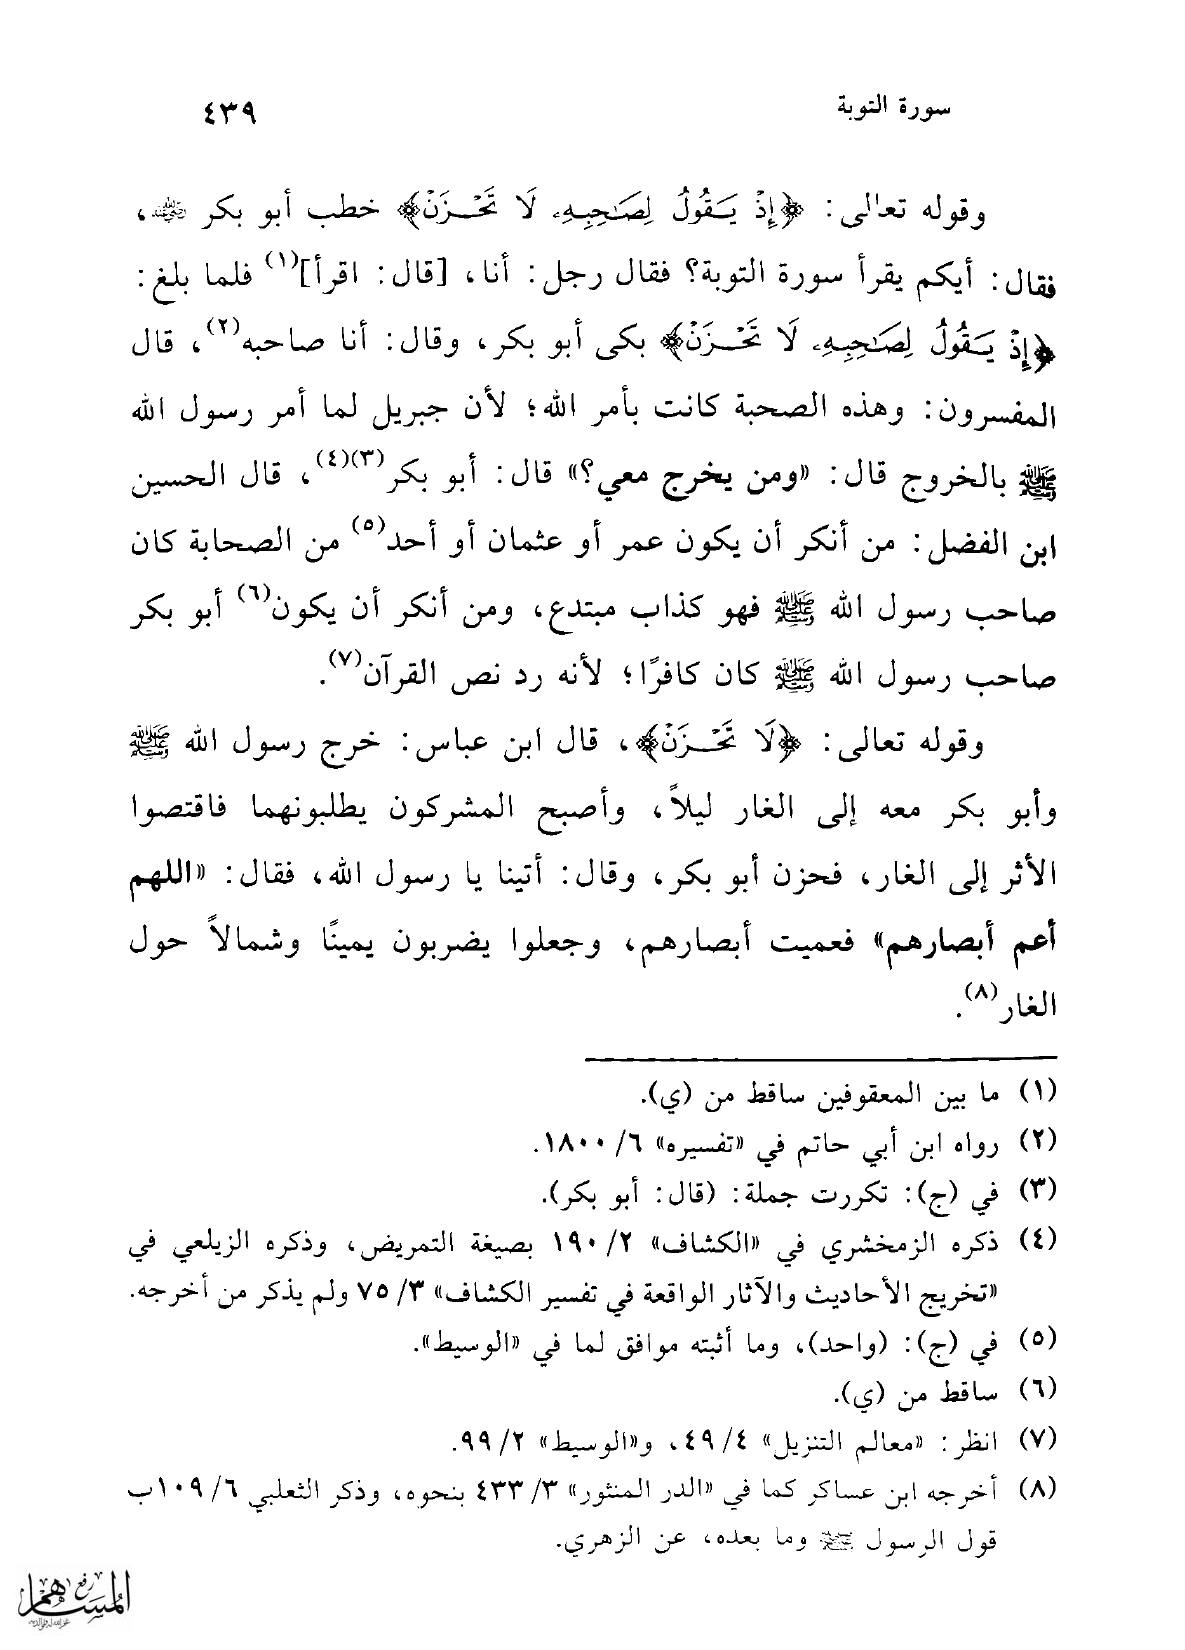 سورة التوبة ٤٣٩
وقوله تعالى: ﴿إِذْ يَقُولُ لِصَاحِبِهِ لَا تَحْزَنْ﴾ خطب أبو بكر رضي الله عنه،
فقال: أيكم يقرأ سورة التوبة؟ فقال رجل: أنا، [قال: اقرأ](١) فلما بلغ:
﴿إِذْ يَقُولُ لِصَاحِبِهِ لَا تَحْزَنْ﴾ بكى أبو بكر، وقال: أنا صاحبه(٢)، قال
المفسرون: وهذه الصحبة كانت بأمر الله؛ لأن جبريل لما أمر رسول الله
ﷺ بالخروج قال: «ومن يخرج معي؟» قال: أبو بكر(٣)(٤)، قال الحسين
ابن الفضل: من أنكر أن يكون عمر أو عثمان أو أحد(٥) من الصحابة كان
صاحب رسول الله ﷺ فهو كذاب مبتدع، ومن أنكر أن يكون(٦) أبو بكر
صاحب رسول الله ﷺ كان كافرًا؛ لأنه رد نص القرآن(٧).
وقوله تعالى: ﴿لَا تَحْزَنْ﴾، قال ابن عباس: خرج رسول الله ﷺ
وأبو بكر معه إلى الغار ليلاً، وأصبح المشركون يطلبونهما فاقتصوا
الأثر إلى الغار، فحزن أبو بكر، وقال: أتينا يا رسول الله، فقال: «اللهم
أعم أبصارهم» فعميت أبصارهم، وجعلوا يضربون يمينًا وشمالاً حول
الغار(٨).
(١) ما بين المعقوفين ساقط من (ي).
(٢) رواه ابن أبي حاتم في «تفسيره» ٦/ ١٨٠٠.
(٣) في (ج): تكررت جملة: (قال: أبو بكر).
(٤) ذكره الزمخشري في «الكشاف» ٢/ ١٩٠ بصيغة التمريض، وذكره الزيلعي في
«تخريج الأحاديث والآثار الواقعة في تفسير الكشاف» ٣/ ٧٥ ولم يذكر من أخرجه.
(٥) في (ج): (واحد)، وما أثبته موافق لما في «الوسيط».
(٦) ساقط من (ي).
(٧) انظر: «معالم التنزيل» ٤/ ٤٩، و«الوسيط» ٢/ ٩٩.
(٨) أخرجه ابن عساكر كما في «الدر المنثور» ٣/ ٤٣٣ بنحوه، وذكر الثعلبي ٦/ ١٠٩ب
قول الرسول ﷺ وما بعده، عن الزهري.
رفع
المساهم